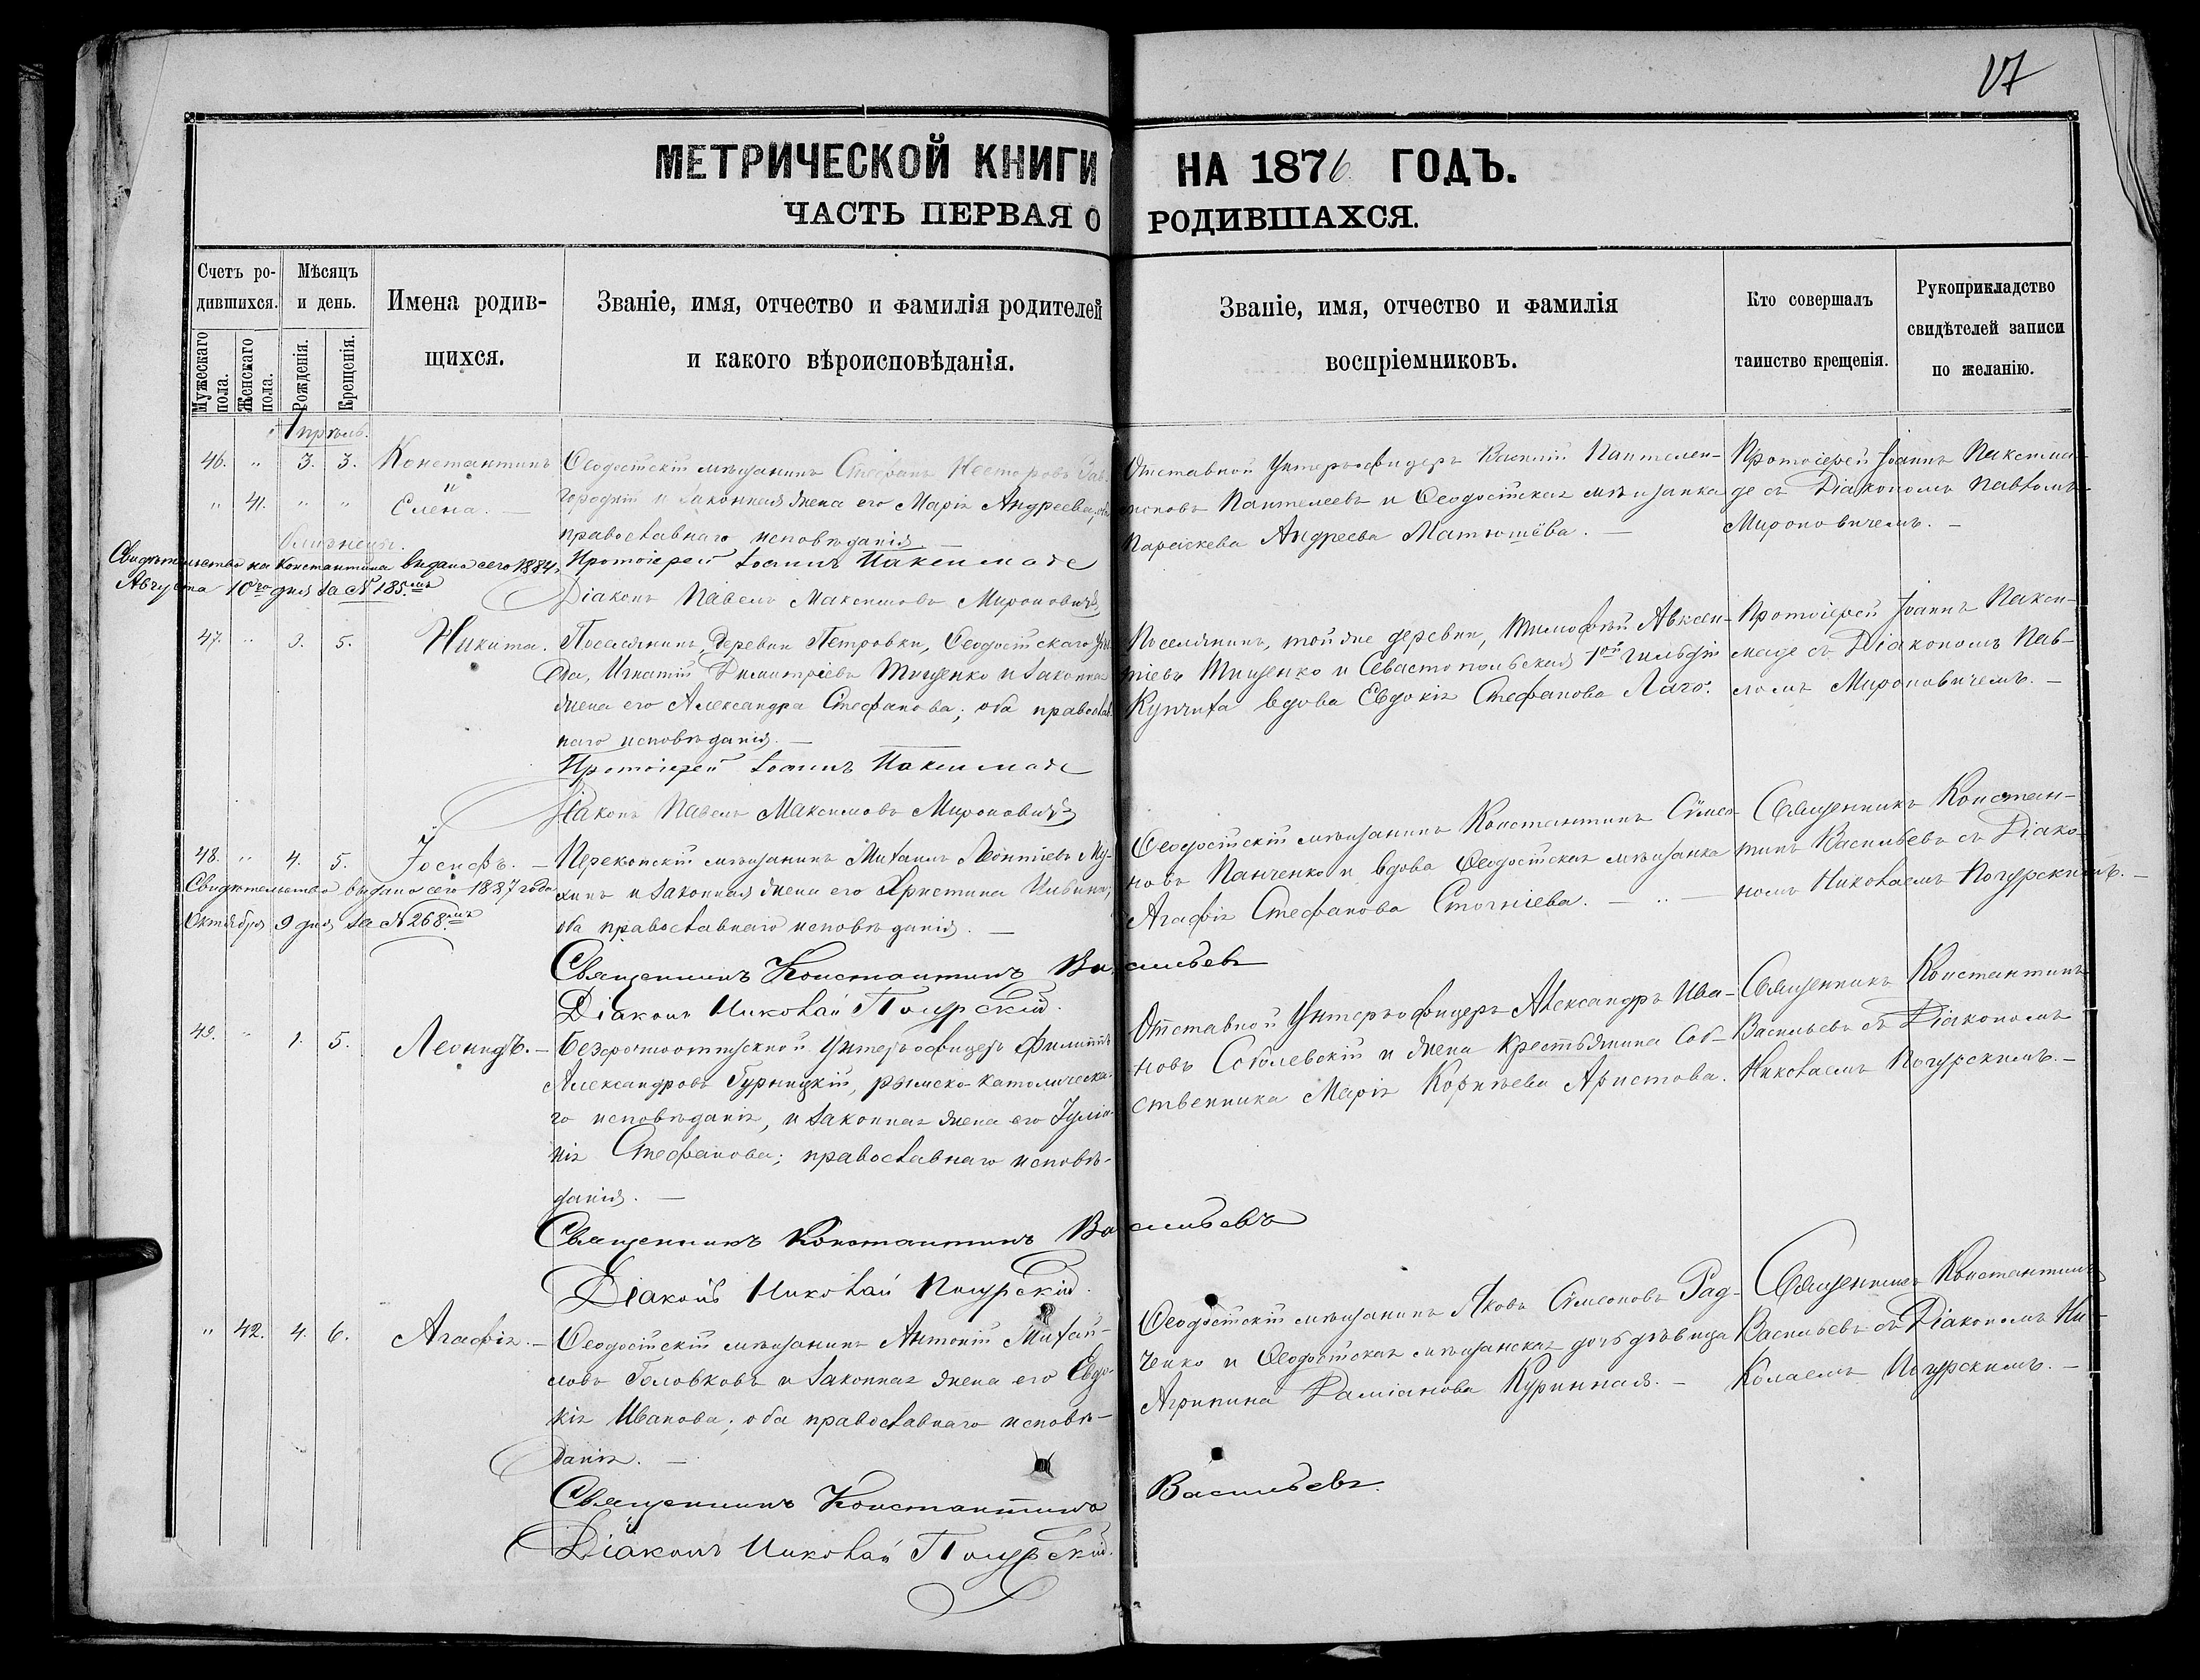 17
МЕТРИЧЕСКОЙ КНИГИ НА 1876 ГОДЪ.
ЧАСТЬ ПЕРВАЯ О РОДИВШАХСЯ.
Счетъ ро-
дившихся.
Мужескаго пола.
Женскаго пола.
Мѣсяцъ
и день.
Рожденія.
Крещенія.
Имена родив-
щихся.
Званіе, имя, отчество и фамилія родителей
и какого вѣроисповѣданія.
Званіе, имя, отчество и фамилія
воспріемниковъ.
Кто совершалъ
таинство крещенія.
Рукоприкладство
свидѣтелей записи
по желанію.
Апрѣль.
46. " 3. 3. Константинъ
и
" 41. " " Елена. —
близнецы.
Ѳеодосійскій мѣщанинъ Стефанъ Несторовъ
городній и законная жена его Марія Андреева; оба
православнаго исповѣданія —
Протоіерей Іоаннъ Паксимаде
Діаконъ Павелъ Максимовъ Мироновичъ
Отставной Унтеръ-офицеръ Василій Пантелеи-
моновъ Пантелеевъ и Ѳеодосійская мѣщанка
Параскева Андреева Матюшёва. —
Протоіерей Іоаннъ Паксима-
де съ Діакономъ Павломъ
Мироновичемъ. —
Свидѣтельство на Константина выдано сего 1884
Августа 10го дня за № 185.мъ
47. " 3. 5. Никита.
Поселянинъ, деревни Петровки, Ѳеодосійскаго уѣз-
да, Игнатій Димитріевъ Тищенко и законная
жена его Александра Стефанова; оба православ-
наго исповѣданія. —
Протоіерей Іоаннъ Паксимаде
Діаконъ Павелъ Максимовъ Мироновичъ
Поселянинъ, той же деревни, Тимофѣй Авксен-
тіевъ Тищенко и Севастопольская 1ой гильдіи
Купчиха вдова Евдокія Стефанова Лаго.
Протоіерей Іоаннъ Пакси-
маде съ Діакономъ Пав-
ломъ Мироновичемъ. —
48. " 4. 5. Іосифъ. —
Свидѣтельство выдано сего 1887 года
Октября 9 дня за № 268.мъ
Перекопскій мѣщанинъ Михаилъ Леонтіевъ Му-
хинъ и законная жена его Христина Ильина;
оба православнаго исповѣданія. —
Священникъ Константинъ Васильевъ
Діаконъ Николай Погурскій.
Ѳеодосійскій мѣщанинъ Константинъ Сѵмео-
новъ Панченко и вдова Ѳеодосійская мѣщанка
Агафія Стефанова Стогніева. — " —
Священникъ Констан-
тинъ Васильевъ съ Діако-
номъ Николаемъ Погурскимъ. —
49. " 1. 5. Леонидъ. —
Безсрочноотпускной Унтеръ-офицеръ Филиппъ
Александровъ Гурницкій, римско-католическа-
го исповѣданія, и законная жена его Іуліа-
нія Стефанова; православнаго исповѣ-
данія. —
Священникъ Константинъ Васильевъ
Діаконъ Николай Погурскій.
Отставной Унтеръ-офицеръ Александръ Ива-
новъ Соболевскій и жена крестьянина Соб-
ственника Марія Корнѣева Аристова.
Священникъ Константинъ
Васильевъ съ Діакономъ
Николаемъ Погурскимъ. —
" 42. 4. 6. Агафія. —
Ѳеодосійскій мѣщанинъ Антоній Михай-
ловъ Головковъ и законная жена его Евдо-
кія Иванова; оба православнаго исповѣ-
данія. —
Священникъ Константинъ Васильевъ.
Діаконъ Николай Погурскій.
Ѳеодосійскій мѣщанинъ Яковъ Сѵмеоновъ Рад-
ченко и Ѳеодосійская мѣщанская дочь дѣвица
Агрипина Даміанова Куринная. —
Священникъ Константинъ
Васильевъ съ Діакономъ Ни-
колаемъ Погурскимъ. —